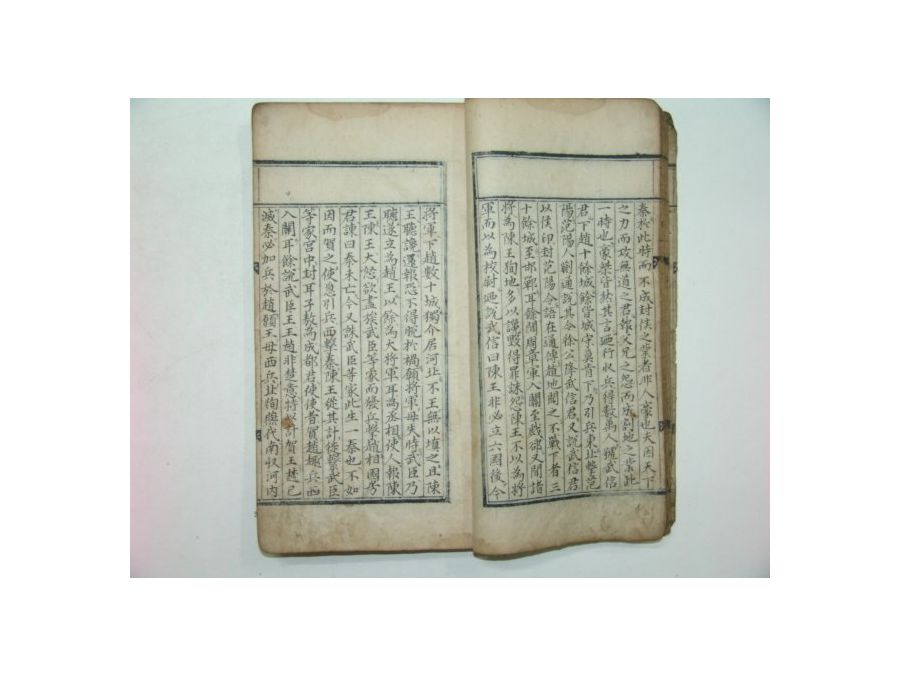 秦於此時而不成封侯之業者非人豪也夫因天下
之力而攻無道之君報父兄之怨而成割地之業此
一時也豪桀皆然其言廼行收兵得數萬人號武信
君下趙十餘城餘皆城守莫肯下乃引兵東北擊范
陽范陽人蒯通說其令徐公降武信君又說武信君
以侯印封范陽令語在通傳趙地聞之不戰下者三
十餘城至邯鄲耳餘聞周章軍入關至戲却又聞諸
將為陳王徇地多以讒毀得罪誅怨陳王不以為將
軍而以為校尉廼說武信曰陳王非必立六國後今
將軍下趙數十城獨介居河北不王無以填之且陳
王聽讒還報恐不得脫於禍願將軍毋失時武臣乃
聽遂立為趙王以餘為大將軍耳為丞相使人報陳
王陳王大怒欲盡族武臣等家而發兵擊趙相國房
君諫曰秦未亡今又誅武臣等家此生一秦也不如
因而賀之使急引兵西擊秦陳王從其計徙繫武臣
等家宮中封耳子敖為成都君使使者賀趙趣兵西
入關耳餘說武臣王王趙非楚意特以計賀王楚已
滅秦必加兵於趙願王毋西兵北徇燕代南收河內